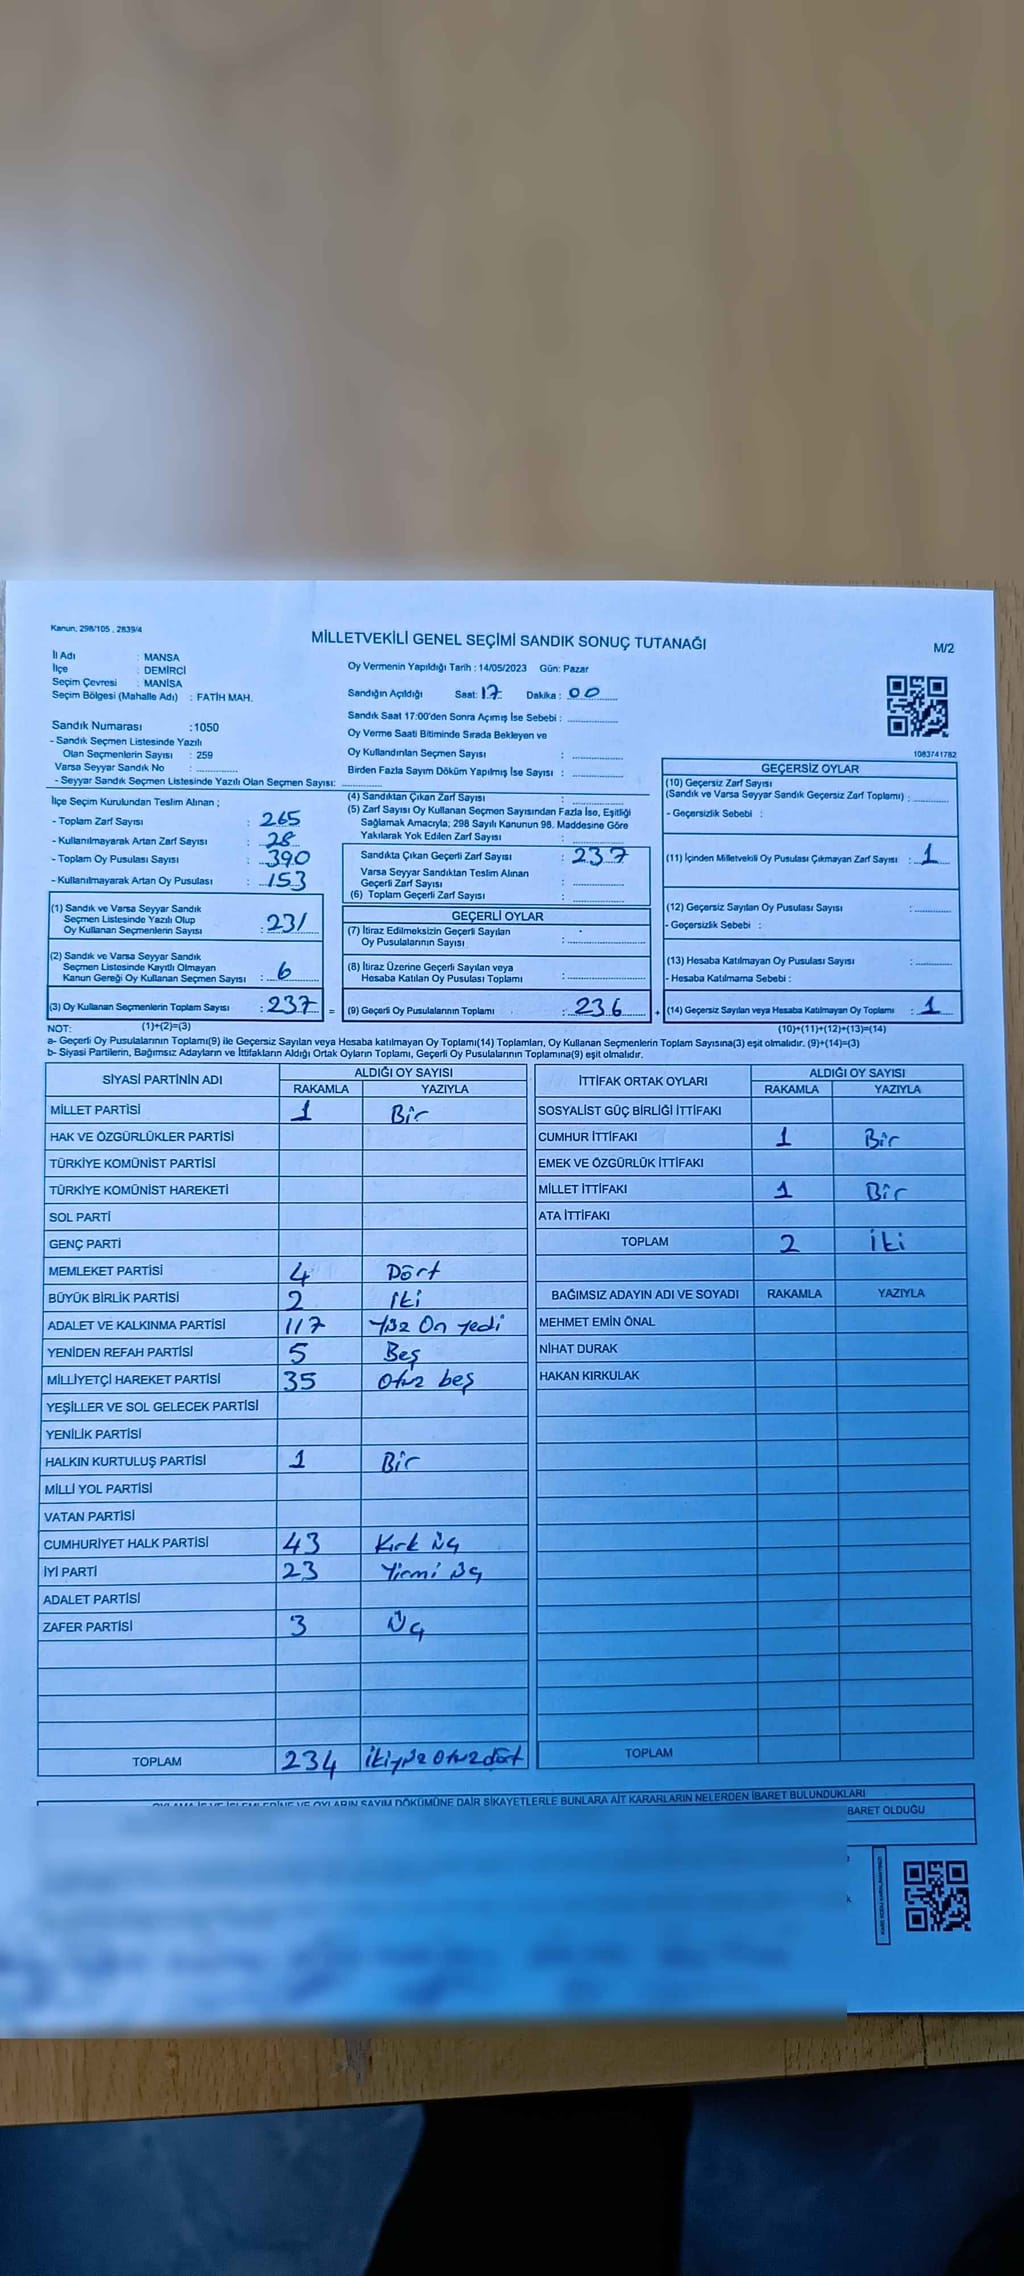 Kanun, 298/105 , 2839/4
MİLLETVEKİLİ GENEL SEÇİMİ SANDIK SONUÇ TUTANAĞI
M/2
İl Adı : MANSA
İlçe : DEMİRCİ
Seçim Çevresi : MANİSA
Seçim Bölgesi (Mahalle Adı) : FATİH MAH.
Oy Vermenin Yapıldığı Tarih : 14/05/2023 Gün: Pazar
Sandığın Açıldığı Saat: 17 Dakika : 00
Sandık Saat 17:00'den Sonra Açımış İse Sebebi :
Oy Verme Saati Bitiminde Sırada Bekleyen ve
Oy Kullandırılan Seçmen Sayısı :
Birden Fazla Sayım Döküm Yapılmış İse Sayısı :
Sandık Numarası :1050
- Sandık Seçmen Listesinde Yazılı
Olan Seçmenlerin Sayısı : 259
Varsa Seyyar Sandık No :
- Seyyar Sandık Seçmen Listesinde Yazılı Olan Seçmen Sayısı:
1083741782
İlçe Seçim Kurulundan Teslim Alınan ;
- Toplam Zarf Sayısı : 265
- Kullanılmayarak Artan Zarf Sayısı : 28
- Toplam Oy Pusulası Sayısı : 390
- Kullanılmayarak Artan Oy Pusulası : 153
(1) Sandık ve Varsa Seyyar Sandık
Seçmen Listesinde Yazılı Olup
Oy Kullanan Seçmenlerin Sayısı : 231
(2) Sandık ve Varsa Seyyar Sandık
Seçmen Listesinde Kayıtlı Olmayan
Kanun Gereği Oy Kullanan Seçmen Sayısı : 6
(3) Oy Kullanan Seçmenlerin Toplam Sayısı : 237 =
(4) Sandıktan Çıkan Zarf Sayısı :
(5) Zarf Sayısı Oy Kullanan Seçmen Sayısından Fazla İse, Eşitliği
Sağlamak Amacıyla; 298 Sayılı Kanunun 98. Maddesine Göre
Yakılarak Yok Edilen Zarf Sayısı :
Sandıkta Çıkan Geçerli Zarf Sayısı : 237
Varsa Seyyar Sandıktan Teslim Alınan
Geçerli Zarf Sayısı :
(6) Toplam Geçerli Zarf Sayısı :
GEÇERLİ OYLAR
(7) İtiraz Edilmeksizin Geçerli Sayılan
Oy Pusulalarının Sayısı :
(8) İtiraz Üzerine Geçerli Sayılan veya
Hesaba Katılan Oy Pusulası Toplamı :
(9) Geçerli Oy Pusulalarının Toplamı : 236 +
GEÇERSİZ OYLAR
(10) Geçersiz Zarf Sayısı
(Sandık ve Varsa Seyyar Sandık Geçersiz Zarf Toplamı) :
- Geçersizlik Sebebi :
(11) İçinden Milletvekili Oy Pusulası Çıkmayan Zarf Sayısı : 1
(12) Geçersiz Sayılan Oy Pusulası Sayısı :
- Geçersizlik Sebebi :
(13) Hesaba Katılmayan Oy Pusulası Sayısı :
- Hesaba Katılmama Sebebi :
(14) Geçersiz Sayılan veya Hesaba Katılmayan Oy Toplamı : 1
NOT: (1)+(2)=(3) (10)+(11)+(12)+(13)=(14)
a- Geçerli Oy Pusulalarının Toplamı(9) ile Geçersiz Sayılan veya Hesaba katılmayan Oy Toplamı(14) Toplamları, Oy Kullanan Seçmenlerin Toplam Sayısına(3) eşit olmalıdır. (9)+(14)=(3)
b- Siyasi Partilerin, Bağımsız Adayların ve İttifakların Aldığı Ortak Oyların Toplamı, Geçerli Oy Pusulalarının Toplamına(9) eşit olmalıdır.
SİYASİ PARTİNİN ADI ALDIĞI OY SAYISI
RAKAMLA YAZIYLA
MİLLET PARTİSİ 1 Bir
HAK VE ÖZGÜRLÜKLER PARTİSİ
TÜRKİYE KOMÜNİST PARTİSİ
TÜRKİYE KOMÜNİST HAREKETİ
SOL PARTİ
GENÇ PARTİ
MEMLEKET PARTİSİ 4 Dört
BÜYÜK BİRLİK PARTİSİ 2 İki
ADALET VE KALKINMA PARTİSİ 117 Yüz On yedi
YENİDEN REFAH PARTİSİ 5 Beş
MİLLİYETÇİ HAREKET PARTİSİ 35 Otuz beş
YEŞİLLER VE SOL GELECEK PARTİSİ
YENİLİK PARTİSİ
HALKIN KURTULUŞ PARTİSİ 1 Bir
MİLLİ YOL PARTİSİ
VATAN PARTİSİ
CUMHURİYET HALK PARTİSİ 43 Kırk üç
İYİ PARTİ 23 Yirmi üç
ADALET PARTİSİ
ZAFER PARTİSİ 3 Üç
TOPLAM 234 İkiyüz Otuz dört
İTTİFAK ORTAK OYLARI ALDIĞI OY SAYISI
RAKAMLA YAZIYLA
SOSYALİST GÜÇ BİRLİĞİ İTTİFAKI
CUMHUR İTTİFAKI 1 Bir
EMEK VE ÖZGÜRLÜK İTTİFAKI
MİLLET İTTİFAKI 1 Bir
ATA İTTİFAKI
TOPLAM 2 İki
BAĞIMSIZ ADAYIN ADI VE SOYADI RAKAMLA YAZIYLA
MEHMET EMİN ÖNAL
NİHAT DURAK
HAKAN KIRKULAK
TOPLAM
OYLAMA İŞ VE İŞLEMLERİNE VE OYLARIN SAYIM DÖKÜMÜNE DAİR ŞİKAYETLERLE BUNLARA AİT KARARLARIN NELERDEN İBARET BULUNDUKLARI
BARET OLDUĞU